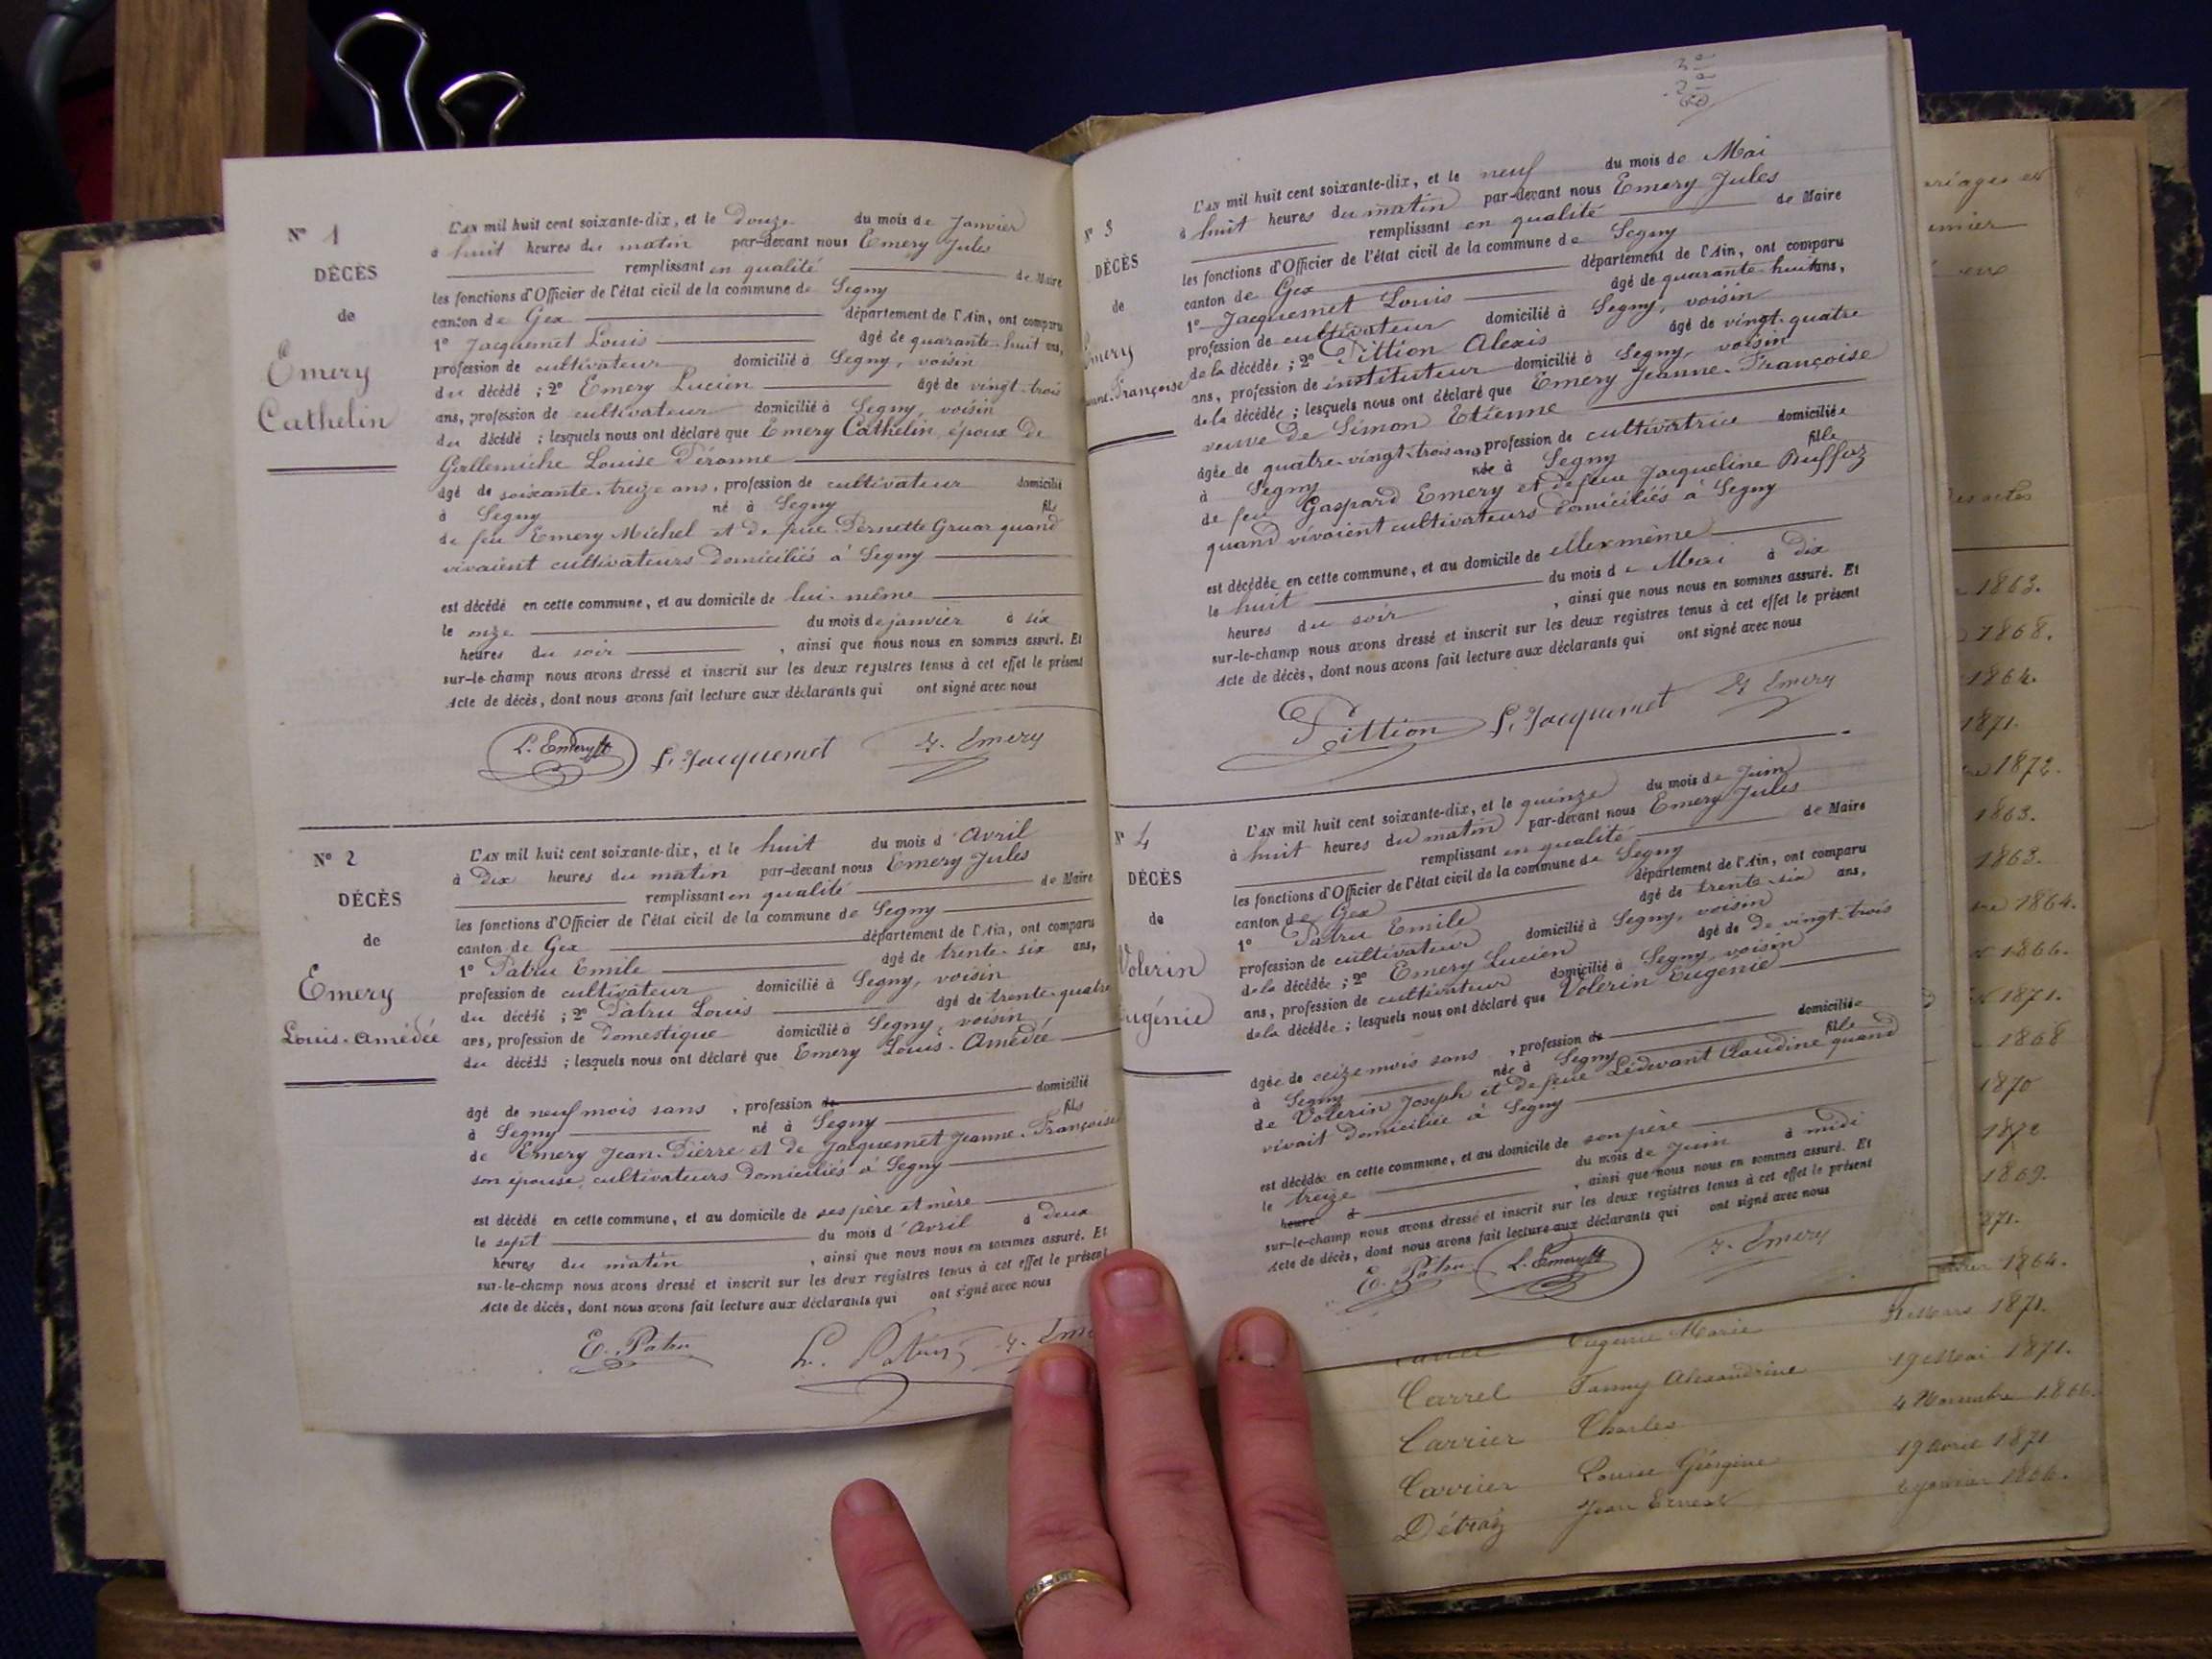 Nº 1
DÉCÈS
de
Emery
Cathelin
L'AN mil huit cent soixante-dix, et le Douze du mois de Janvier
à huit heures du matin par-devant nous Emery Jules
remplissant en qualité de Maire
les fonctions d'Officier de l'état civil de la commune de Segny
canton de Gex département de l'Ain, ont comparu
1º Jacquemet Louis âgé de quarante-huit ans,
profession de cultivateur domicilié à Segny, voisin
du décédé ; 2º Emery Lucien âgé de vingt-trois
ans, profession de cultivateur domicilié à Segny, voisin
du décédé ; lesquels nous ont déclaré que Emery Cathelin, époux de
Louise Péronne
âgé de soixante-treize ans, profession de cultivateur domicilié
à Segny né à Segny fils
de feu Emery Michel et de feue Pernette Gruaz quand
vivaient cultivateurs domiciliés à Segny
est décédé en cette commune, et au domicile de lui-même
le onze du mois de janvier à six
heures du soir , ainsi que nous nous en sommes assuré. Et
sur-le-champ nous avons dressé et inscrit sur les deux registres tenus à cet effet le présent
Acte de décès, dont nous avons fait lecture aux déclarants qui ont signé avec nous
L. Emery L. Jacquemet J. Emery
Nº 2
DÉCÈS
de
Emery
Louis-Amédée
L'AN mil huit cent soixante-dix, et le huit du mois d'Avril
à Dix heures du matin par-devant nous Emery Jules
remplissant en qualité de Maire
les fonctions d'Officier de l'état civil de la commune de Segny
canton de Gex département de l'Ain, ont comparu
1º Patru Emile âgé de trente-six ans,
profession de cultivateur domicilié à Segny, voisin
du décédé ; 2º Patru Louis âgé de trente-quatre
ans, profession de Domestique domicilié à Segny, voisin
du décédé ; lesquels nous ont déclaré que Emery Louis-Amédée
âgé de neuf mois sans , profession de domicilié
à Segny né à Segny fils
de Emery Jean-Pierre et de Jacquemet Jeanne-Françoise
son épouse, cultivateurs Domiciliés à Segny
est décédé en cette commune, et au domicile de ses père et mère
le sept du mois d'Avril à Deux
heures du matin , ainsi que nous nous en sommes assuré. Et
sur-le-champ nous avons dressé et inscrit sur les deux registres tenus à cet effet le présent
Acte de décès, dont nous avons fait lecture aux déclarants qui ont signé avec nous
E. Patru L. Patru J. Eme
Nº 3
DÉCÈS
de
Emery
Françoise
L'AN mil huit cent soixante-dix, et le neuf du mois de Mai
à huit heures du matin par-devant nous Emery Jules
remplissant en qualité de Maire
les fonctions d'Officier de l'état civil de la commune de Segny
canton de Gex département de l'Ain, ont comparu
1º Jacquemet Louis âgé de quarante-huit ans,
profession de cultivateur domicilié à Segny, voisin
de la décédée ; 2º Pittion Alexis âgé de vingt-quatre
ans, profession de instituteur domicilié à Segny, voisin
de la décédée ; lesquels nous ont déclaré que Emery Jeanne-Françoise
veuve de Simon Etienne
âgée de quatre-vingt-trois ans, profession de cultivatrice domiciliée
à Segny née à Segny fille
de feu Gaspard Emery et de feue Jacqueline Buffaz
quand vivaient cultivateurs domiciliés à Segny
est décédée en cette commune, et au domicile de elle même
le huit du mois de Mai à dix
heures du soir , ainsi que nous nous en sommes assuré. Et
sur-le-champ nous avons dressé et inscrit sur les deux registres tenus à cet effet le présent
Acte de décès, dont nous avons fait lecture aux déclarants qui ont signé avec nous
Pittion L. Jacquemet J. Emery
Nº 4
DÉCÈS
de
Volerin
ugénie
L'AN mil huit cent soixante-dix, et le quinze du mois de Juin
à huit heures du matin par-devant nous Emery Jules
remplissant en qualité de Maire
les fonctions d'Officier de l'état civil de la commune de Segny
canton de Gex département de l'Ain, ont comparu
1º Patru Emile âgé de trente-six ans,
profession de cultivateur domicilié à Segny, voisin
de la décédée ; 2º Emery Lucien âgé de de vingt-trois
ans, profession de cultivateur domicilié à Segny, voisin
de la décédée ; lesquels nous ont déclaré que Volerin Eugénie
âgée de seize mois sans , profession de domiciliée
à Segny née à Segny fille
de Volerin Joseph et de feue Lédevant Claudine quand
vivait domiciliée à Segny
est décédée en cette commune, et au domicile de son père
le treize du mois de Juin à midi
heure d , ainsi que nous nous en sommes assuré. Et
sur-le-champ nous avons dressé et inscrit sur les deux registres tenus à cet effet le présent
Acte de décès, dont nous avons fait lecture aux déclarants qui ont signé avec nous
E. Patru L. Emery J. Emery
1863.
1868.
1864.
1871.
1872.
1863.
1863.
1864.
1866.
1871.
1868
1870
1872
1869.
871.
1864.
Eugénie Marie 1871.
Carrel Fanny Alexandrine 19 Mai 1871.
Carrier Charles 4 Novembre 1866
Carrier Louise Géorgine 19 Avril 1871
Détraz Jean Ernest Janvier 1866.